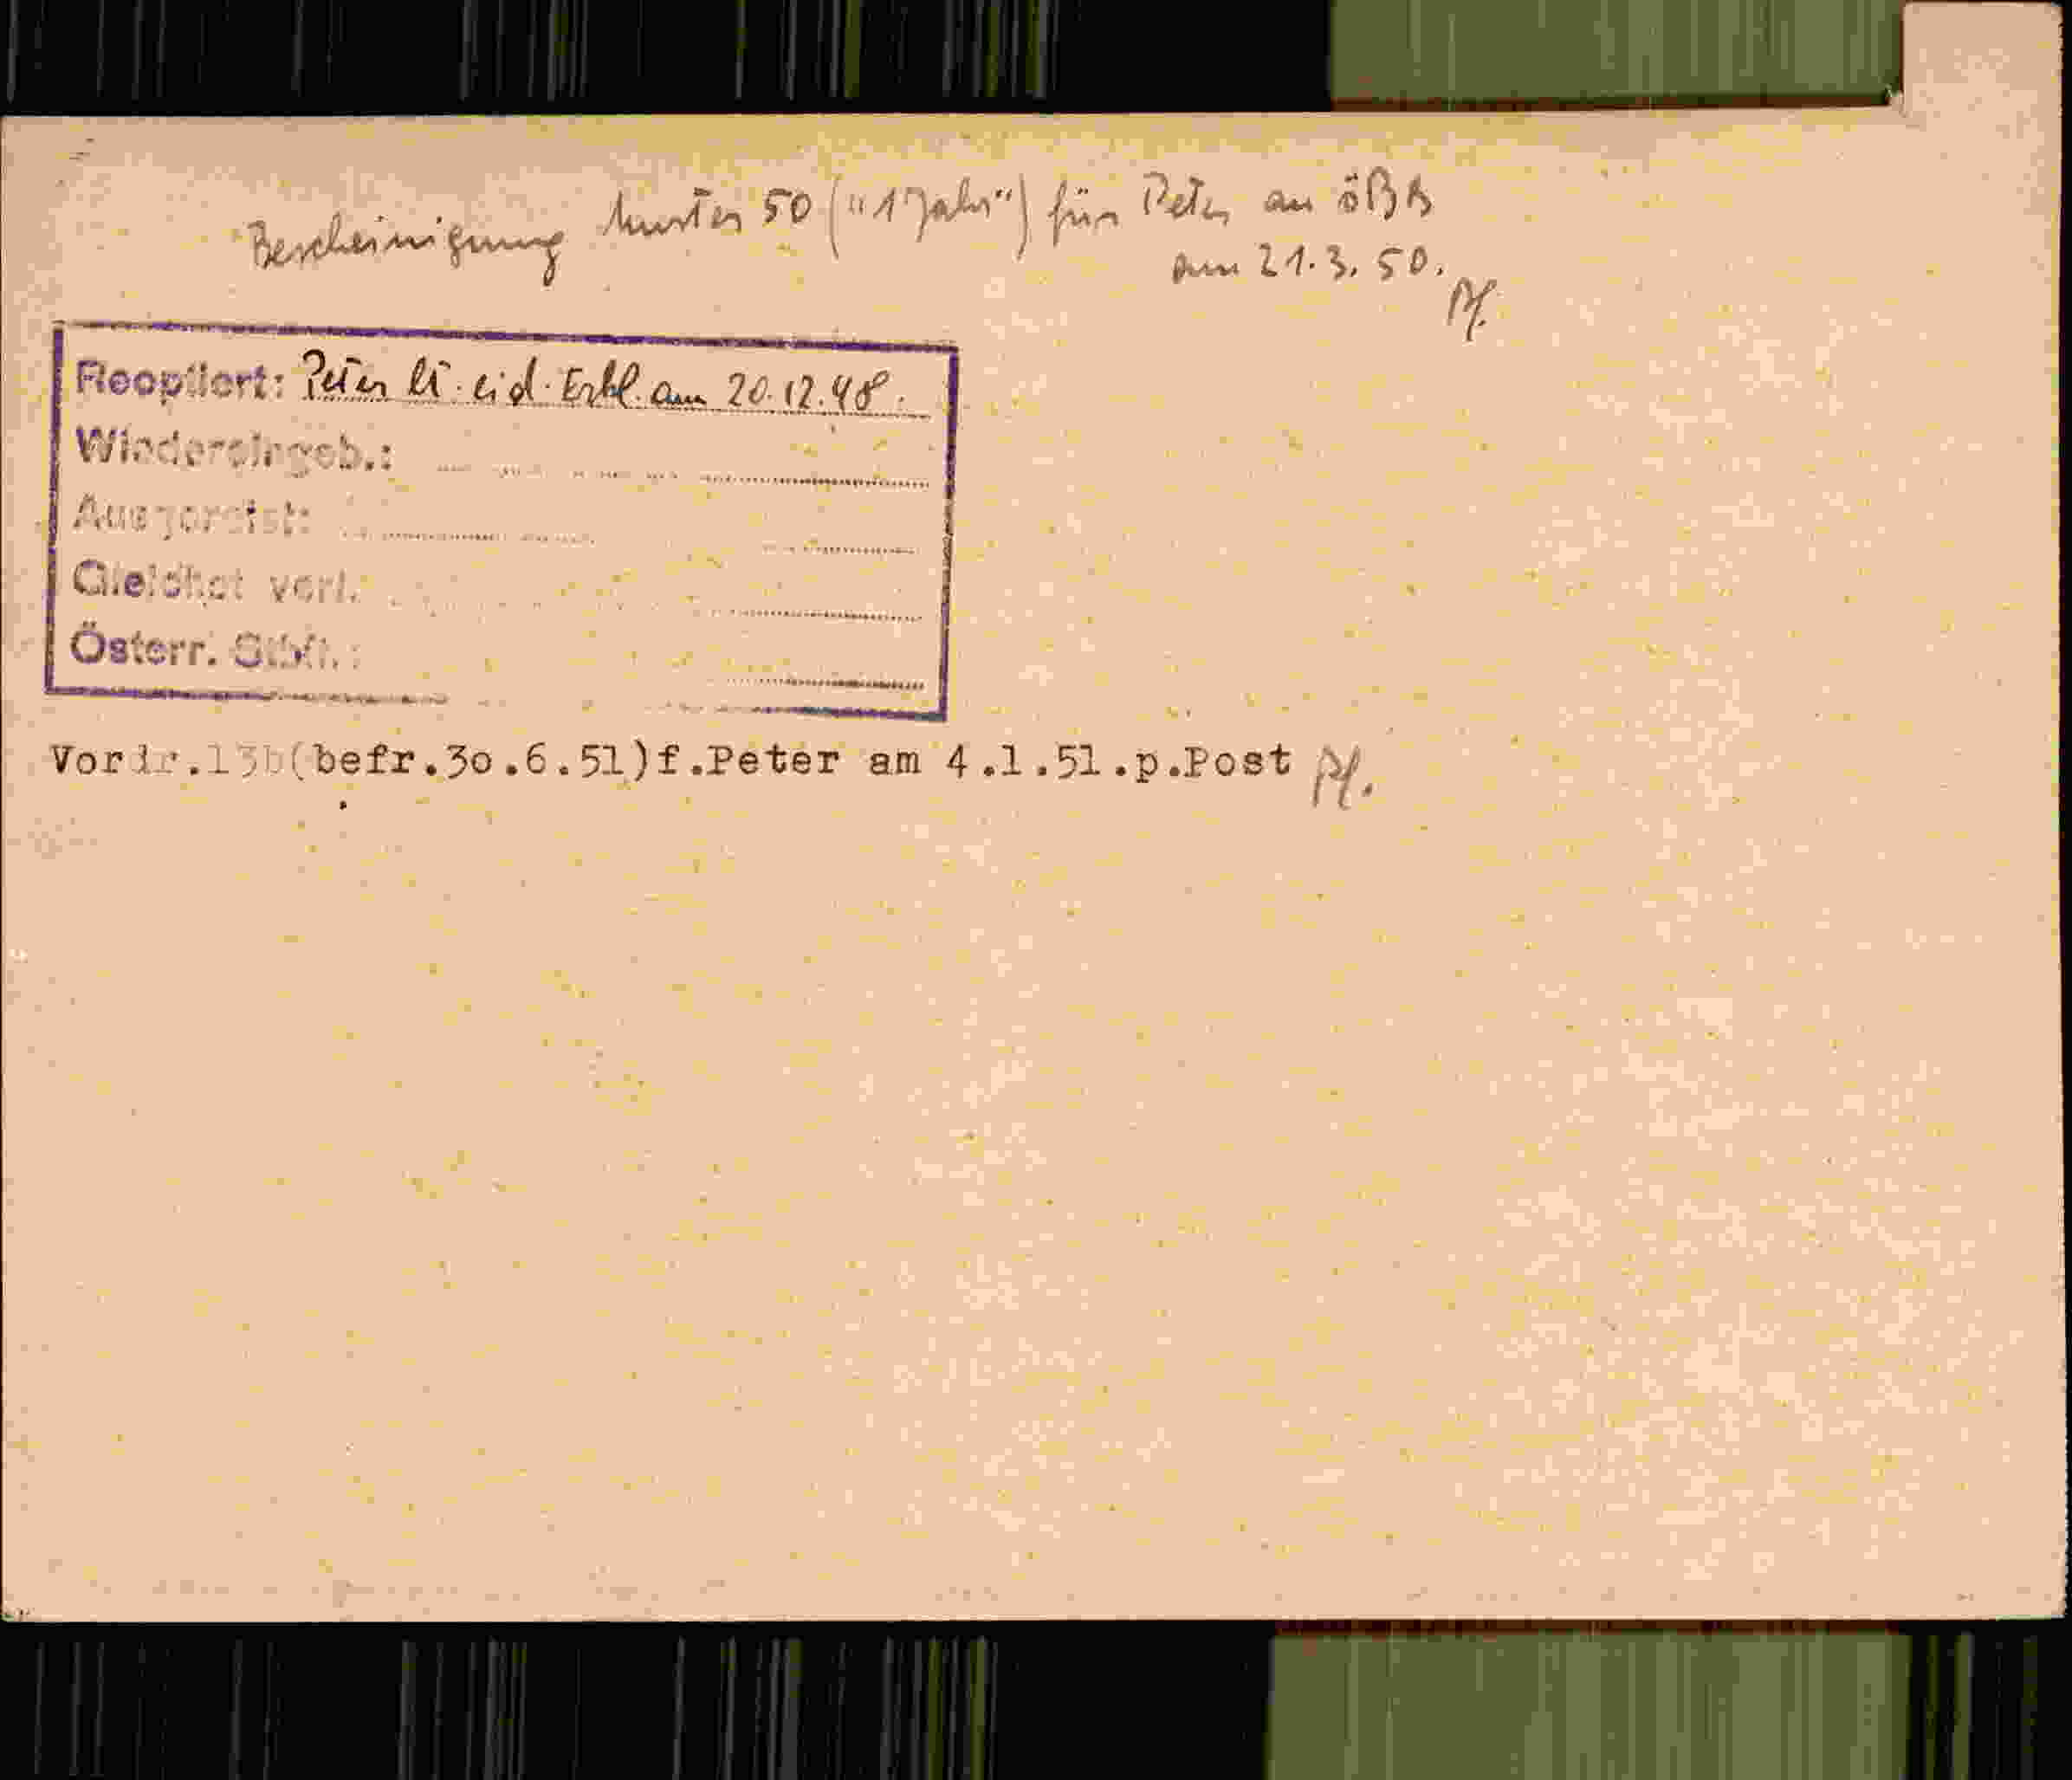 Bescheinigung Muster 50 („1 Jahr“) für Peter an öBB
am 21.3.50.
Pf.
Reoptiert: Peter lt. eid. Erkl. am 20.12.48.
Wiedereingeb.:
Ausgereist:
Gleichst verl.
Österr. Stbft.:
Vordr.13b(befr.30.6.51)f.Peter am 4.1.51.p.Post Pf.